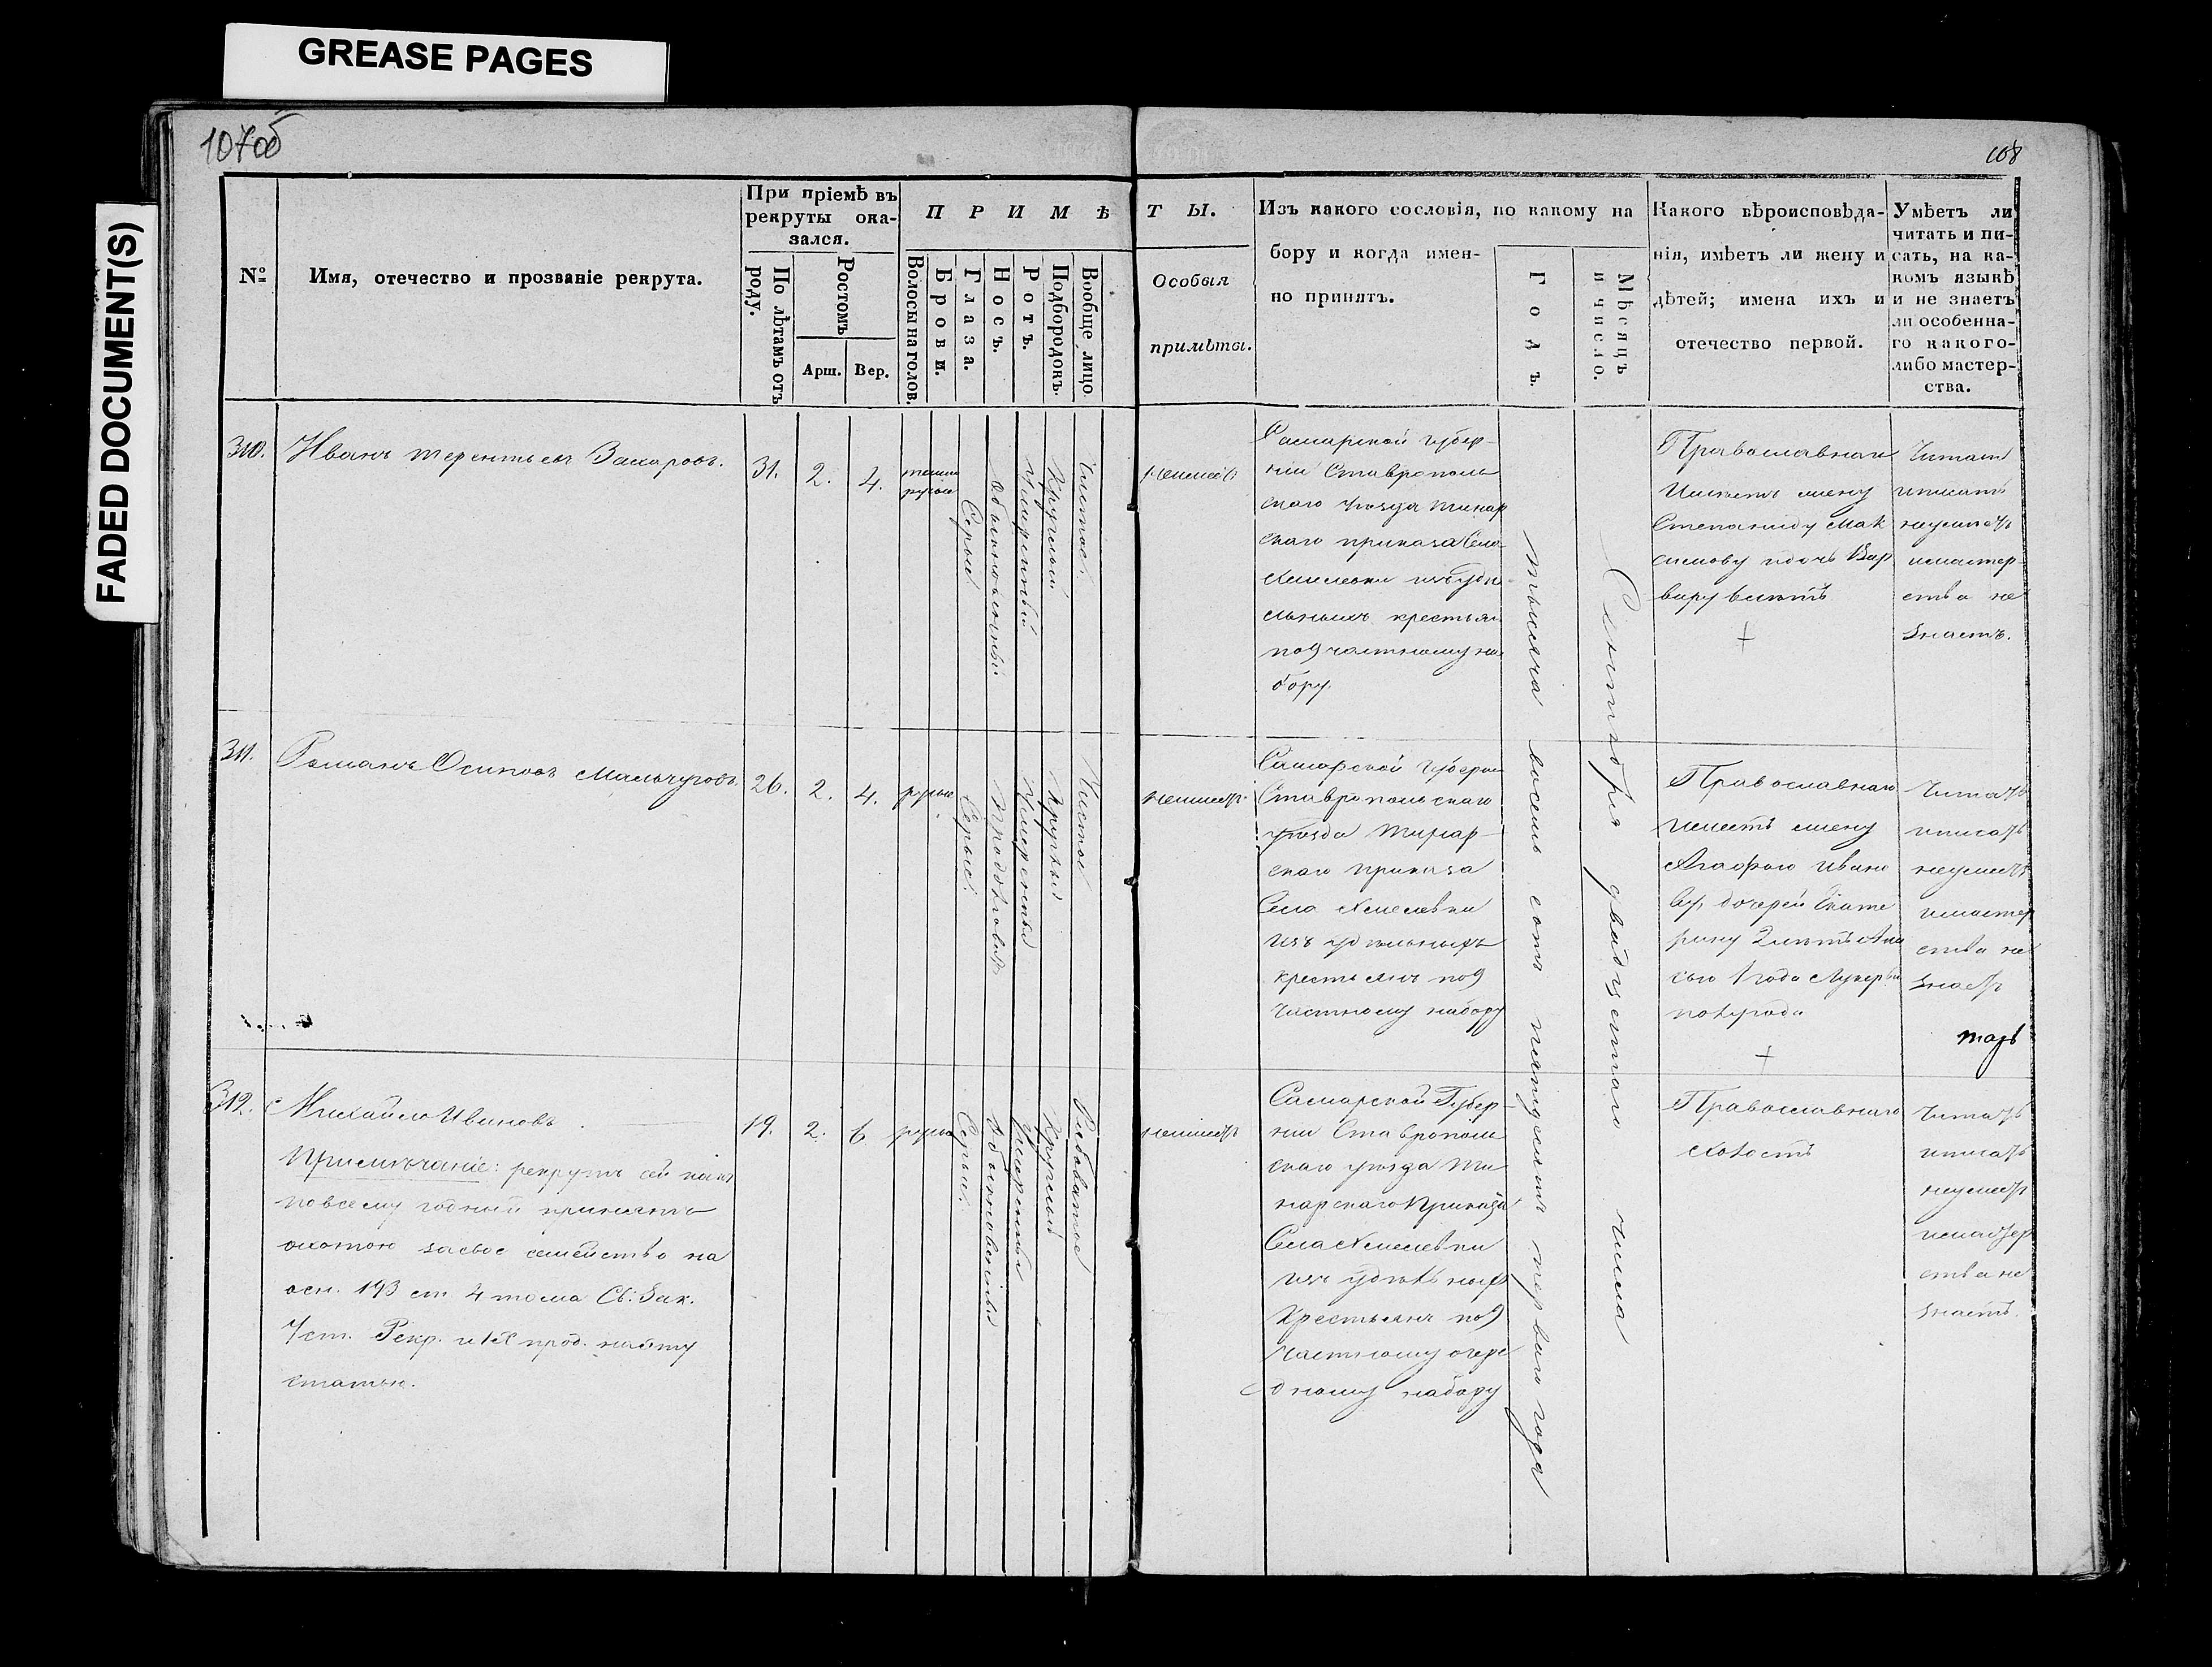 GREASE PAGES
FADED DOCUMENT(S)
107об
108
№
Имя, отечество и прозваніе рекрута.
При пріемѣ въ
рекруты ока-
зался.
По лѣтамъ отъ
роду.
Ростомъ
Арш.
Вер.
П Р И М Ѣ Т Ы.
Волосы на голов.
Брови.
Глаза.
Носъ.
Ротъ.
Подбородокъ.
Вообще лицо.
Особыя
примѣты.
Изъ какого сословія, по какому на
бору и когда имен-
но принятъ.
Годъ.
Мѣсяцъ
и число.
Какого вѣроисповѣда-
нія, имѣетъ ли жену и
дѣтей; имена ихъ и
отечество первой.
Умѣетъ ли
читать и пи-
сать, на ка-
комъ языкѣ
и не знаетъ
ли особенна-
го какого-
либо мастер-
ства.
310.
Иванъ Терентьевъ Захаровъ.
31.
2.
4.
темно
русые
Серые
Обыкновенный
Умеренный
Круглый
Чистое.
неимеетъ
Самарской губер-
ніи Ставрополь
скаго уѣзда Тинар
скаго приказа Села
Хмелевки изъ удѣ
льныхъ крестьянъ
под частному на
бору.
тысяча восемь сотъ пятьдесятъ перваго года
Сентября двадцатаго числа
Православнаго
Имѣетъ жену
Степаниду Мак
симову и дочь Вар
вару 6 лѣтъ
+
Читать
и писать
не умѣетъ
и мастер-
ства не
знаетъ.
311.
Романъ Осиповъ Мальчуговъ.
26.
2.
4.
русые
Серые.
Продолговат
Умеренный
Круглый
Чистое
неимеетъ
Самарской Губерніи
Ставропольскаго
уѣзда Тинар-
скаго приказа
Села Хмелевки
изъ удѣльныхъ
крестьянъ под
частному набору
Православнаго
имѣетъ жену
Агафью Ивано
ву, дочерей Екате
рину 2 лѣтъ
1 года
полугода
+
Читать
и писать
не умѣетъ
и мастер
ства не
знаетъ
312.
Михайло Ивановъ
Примѣчаніе: рекрутъ сей какъ
по всему годный принятъ
охотою за свое семейство на
осн. 193 ст 4 тома Св: Зак.
Уст. Рекр. и IX прод. на эту
статью.
19.
2.
6.
русые
Серые.
Обыкновенный
Умеренный
Круглый
Рябоватое
неимеетъ
Самарской Губер-
ніи Ставрополь
скаго уѣзда Ти
нарскаго Приказа
Села Хмелевки
изъ удѣльныхъ
Крестьянъ под
Частному очере
дному набору
Православнаго
холостъ
Читать
и писать
не умѣетъ
и мастер
ства не
знаетъ.